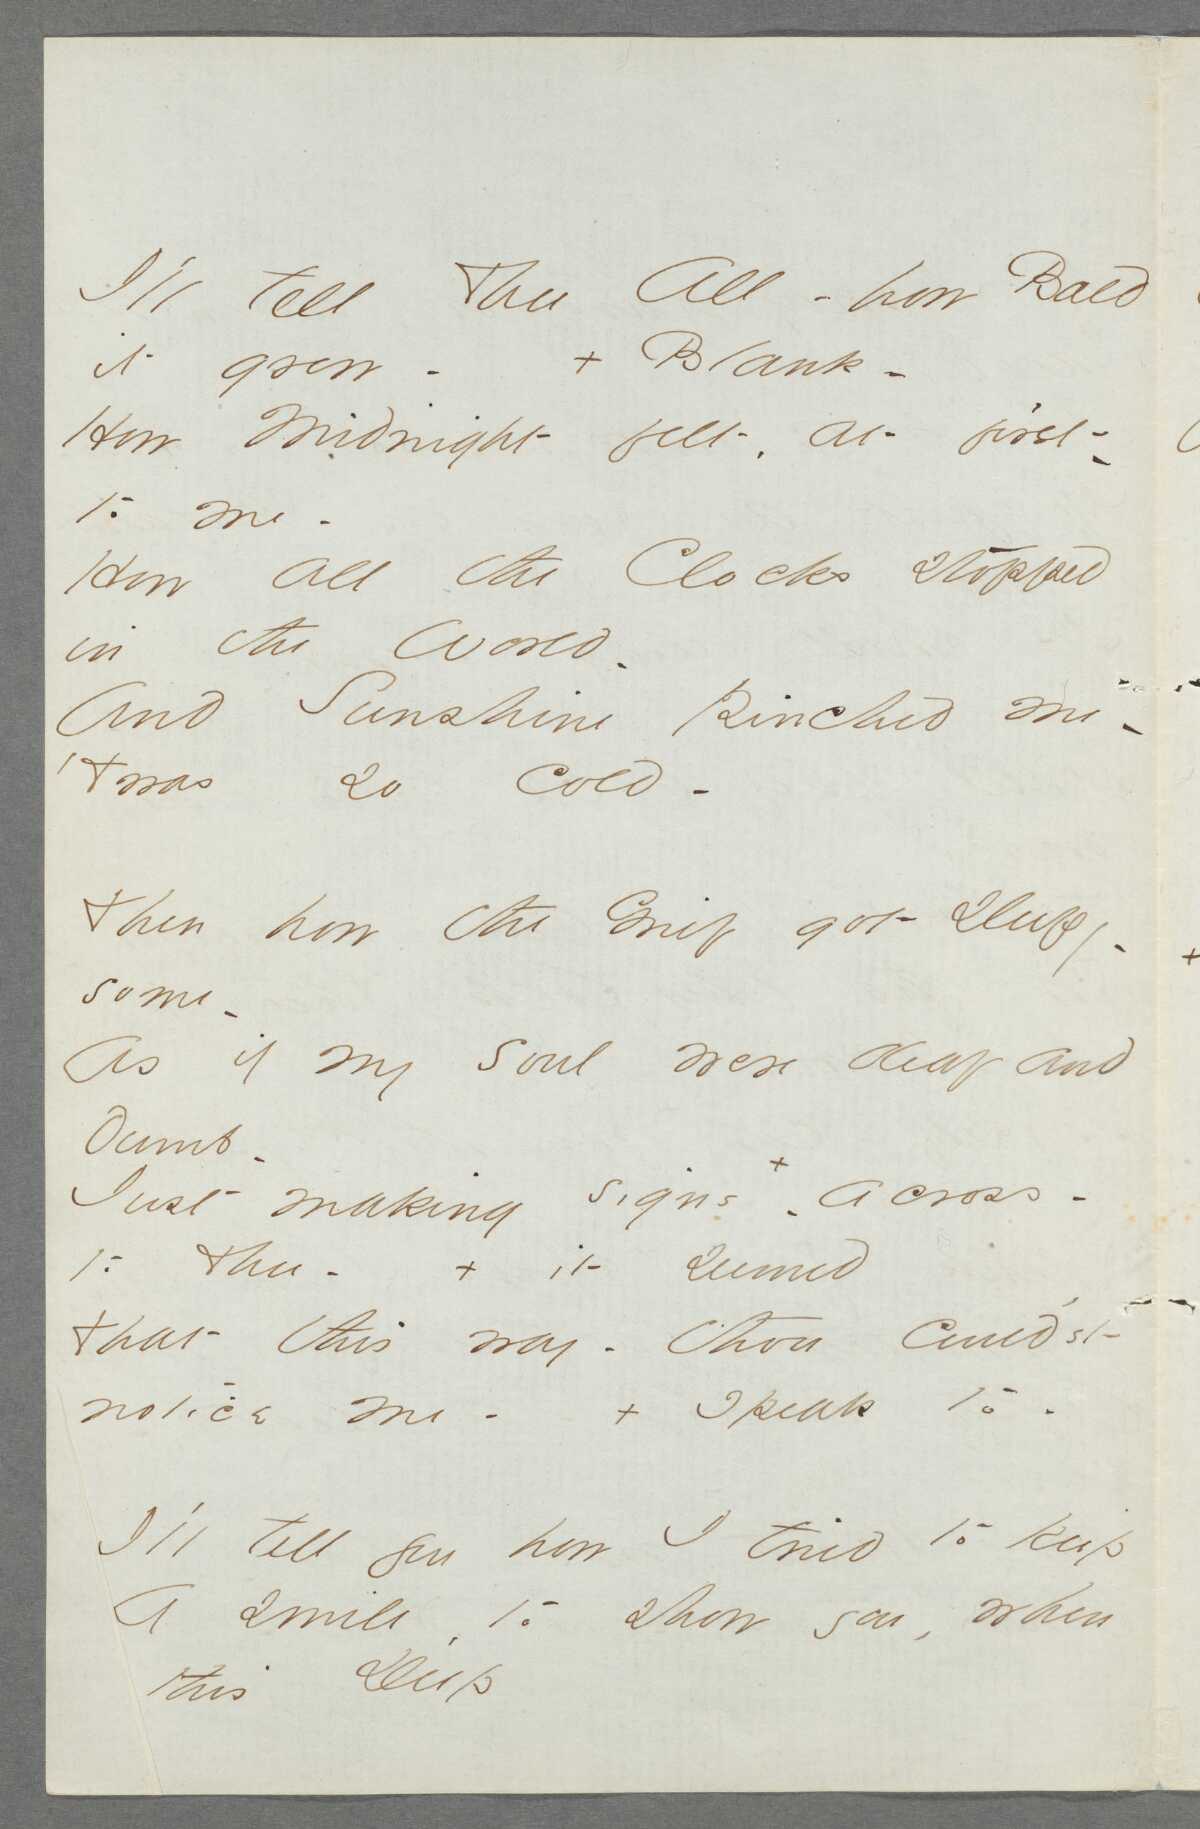 I'll tell Thee All - how Bald
it grew - + Blank -
How Midnight felt, at first -
to me -
How all the Clocks stopped
in the World -
And Sunshine pinched me -
'Twas so cold -
Then how the Grief got sleepy -
some -
As if my soul were deaf and
dumb -
Just making signs + - across -
to Thee - + it seemed
That this way - thou could'st
notice me - + speak to -
I'll tell you how I tried to keep
A smile, to show you, when
this Deep